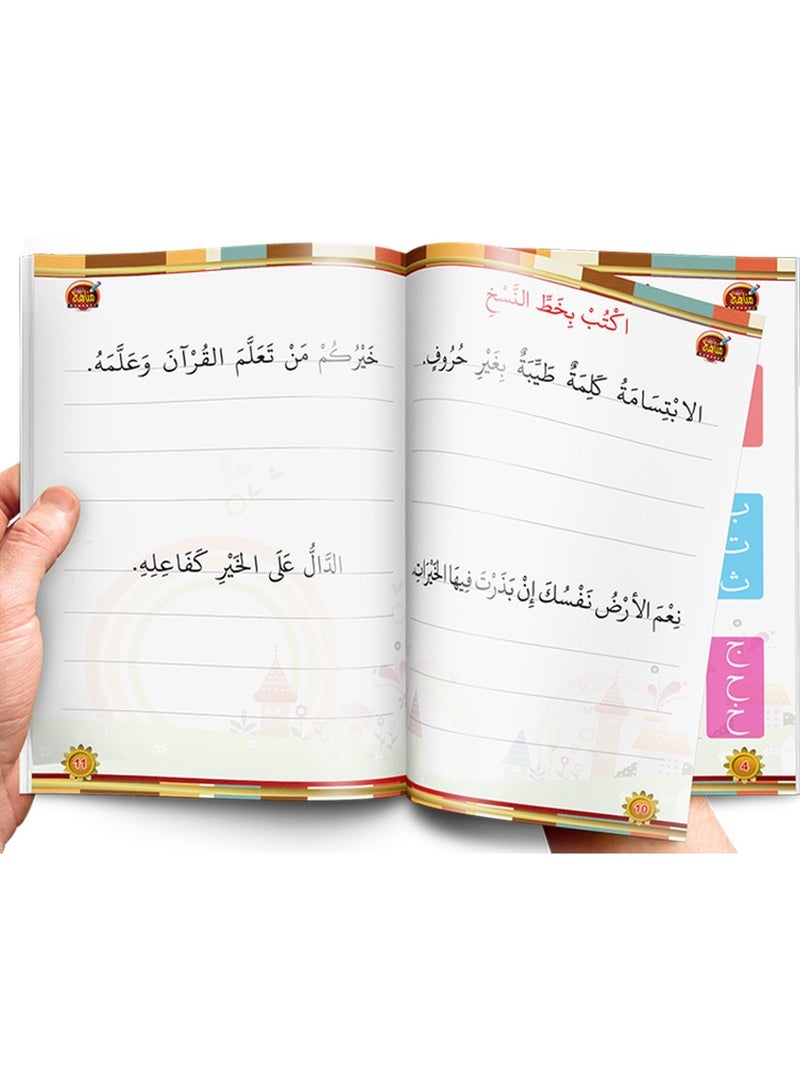 اكْتُبْ بِخَطِّ النَّسْخِ
الابْتِسَامَةُ كَلِمَةٌ طَيِّبَةٌ بِغَيْرِ حُرُوفٍ.
نِعْمَ الأَرْضُ نَفْسُكَ إِنْ بَذَرْتَ فِيهَا الخَيْرَاتِ.
10
خَيْرُكُمْ مَنْ تَعَلَّمَ القُرْآنَ وَعَلَّمَهُ.
الدَّالُّ عَلَى الخَيْرِ كَفَاعِلِهِ.
11
ب
ت
ث
4